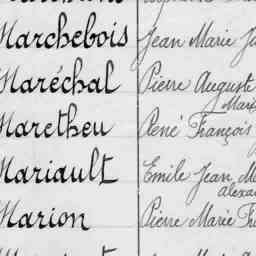 Marchebois Jean Marie
Maréchal Pierre Auguste
Marie
Maretheu René François
Mariault Emile Jean
alexa
Marion Pierre Marie